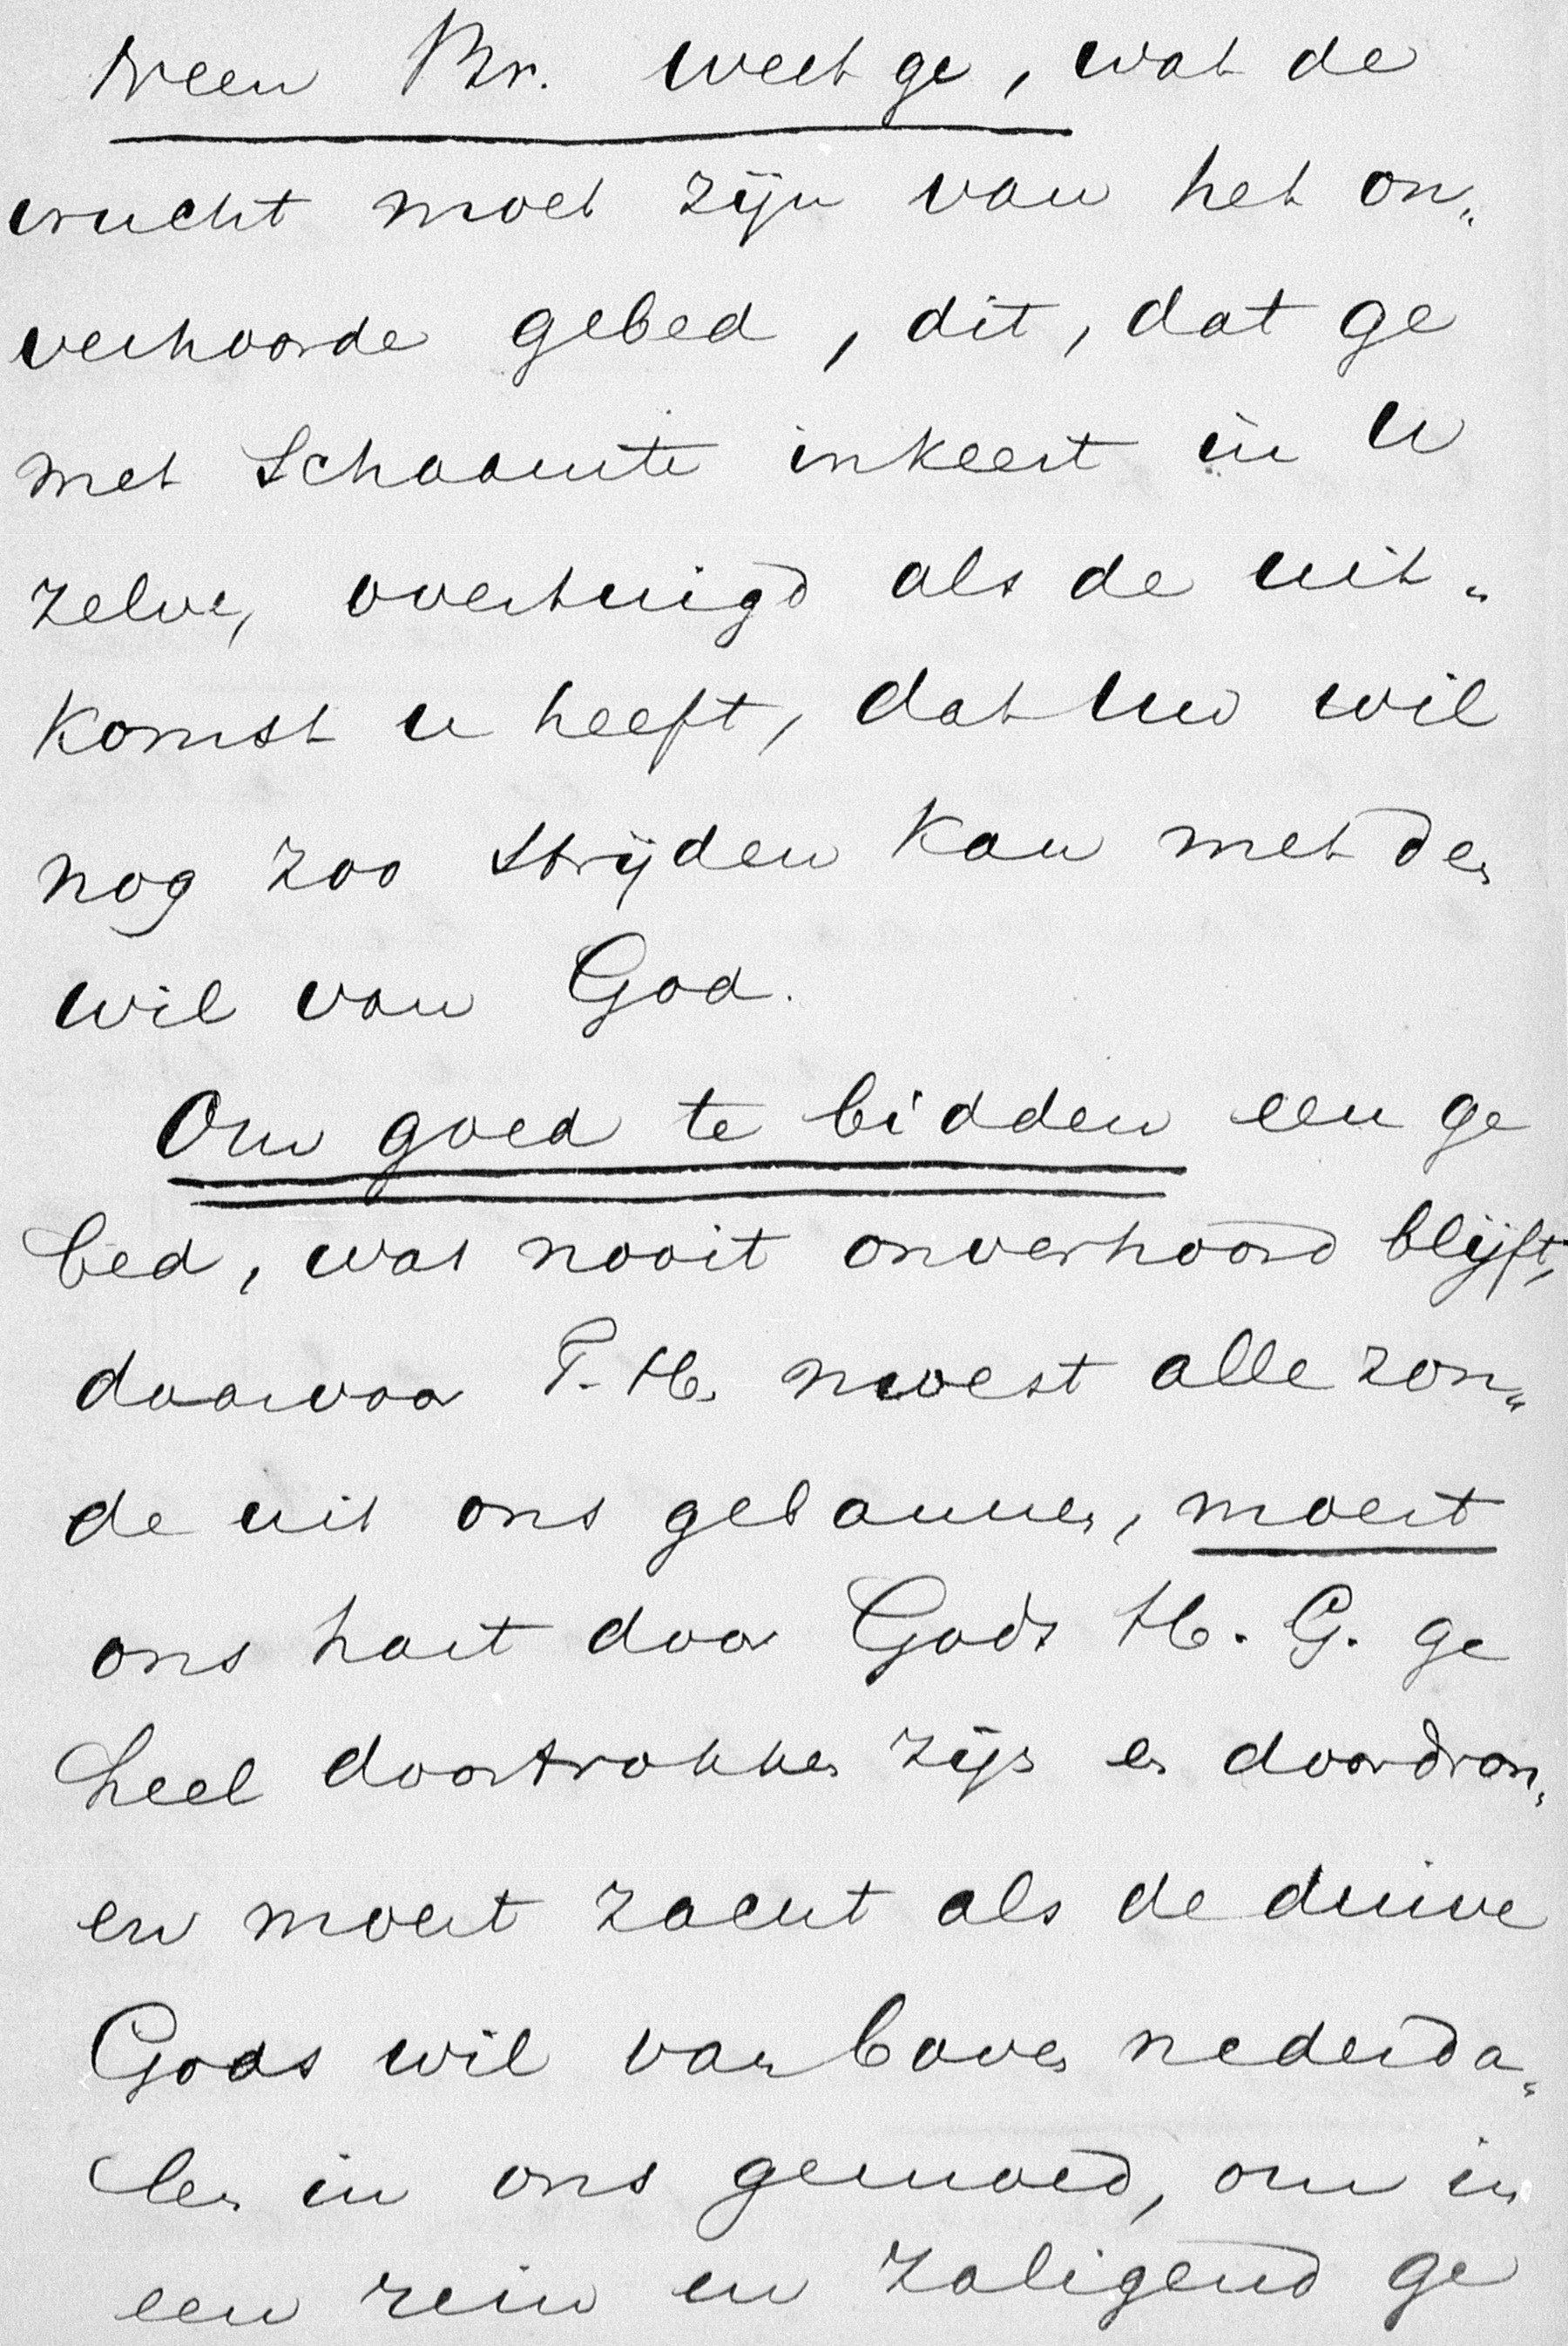 Neen Br. weet ge, wat de
vrucht moet zijn van het on„
verhoorde gebed, dit, dat ge
met schaamte inkeert in U
zelve, overtuigd als de uit„
komst u heeft, dat Uw wil
nog zoo strijden kan met den
wil van God.
Om goed te bidden een ge
bed, wat nooit onverhoord blijft,
daarvoor T. H. moest alle zon„
de uit ons gebannen, moest
ons hart door Gods H. G. ge
heel doortrokken zijn en doordron„
en moest zacht als de duive
Gods wil van boven nederda„
len in ons gemoed, om in
een rein en zaligend ge